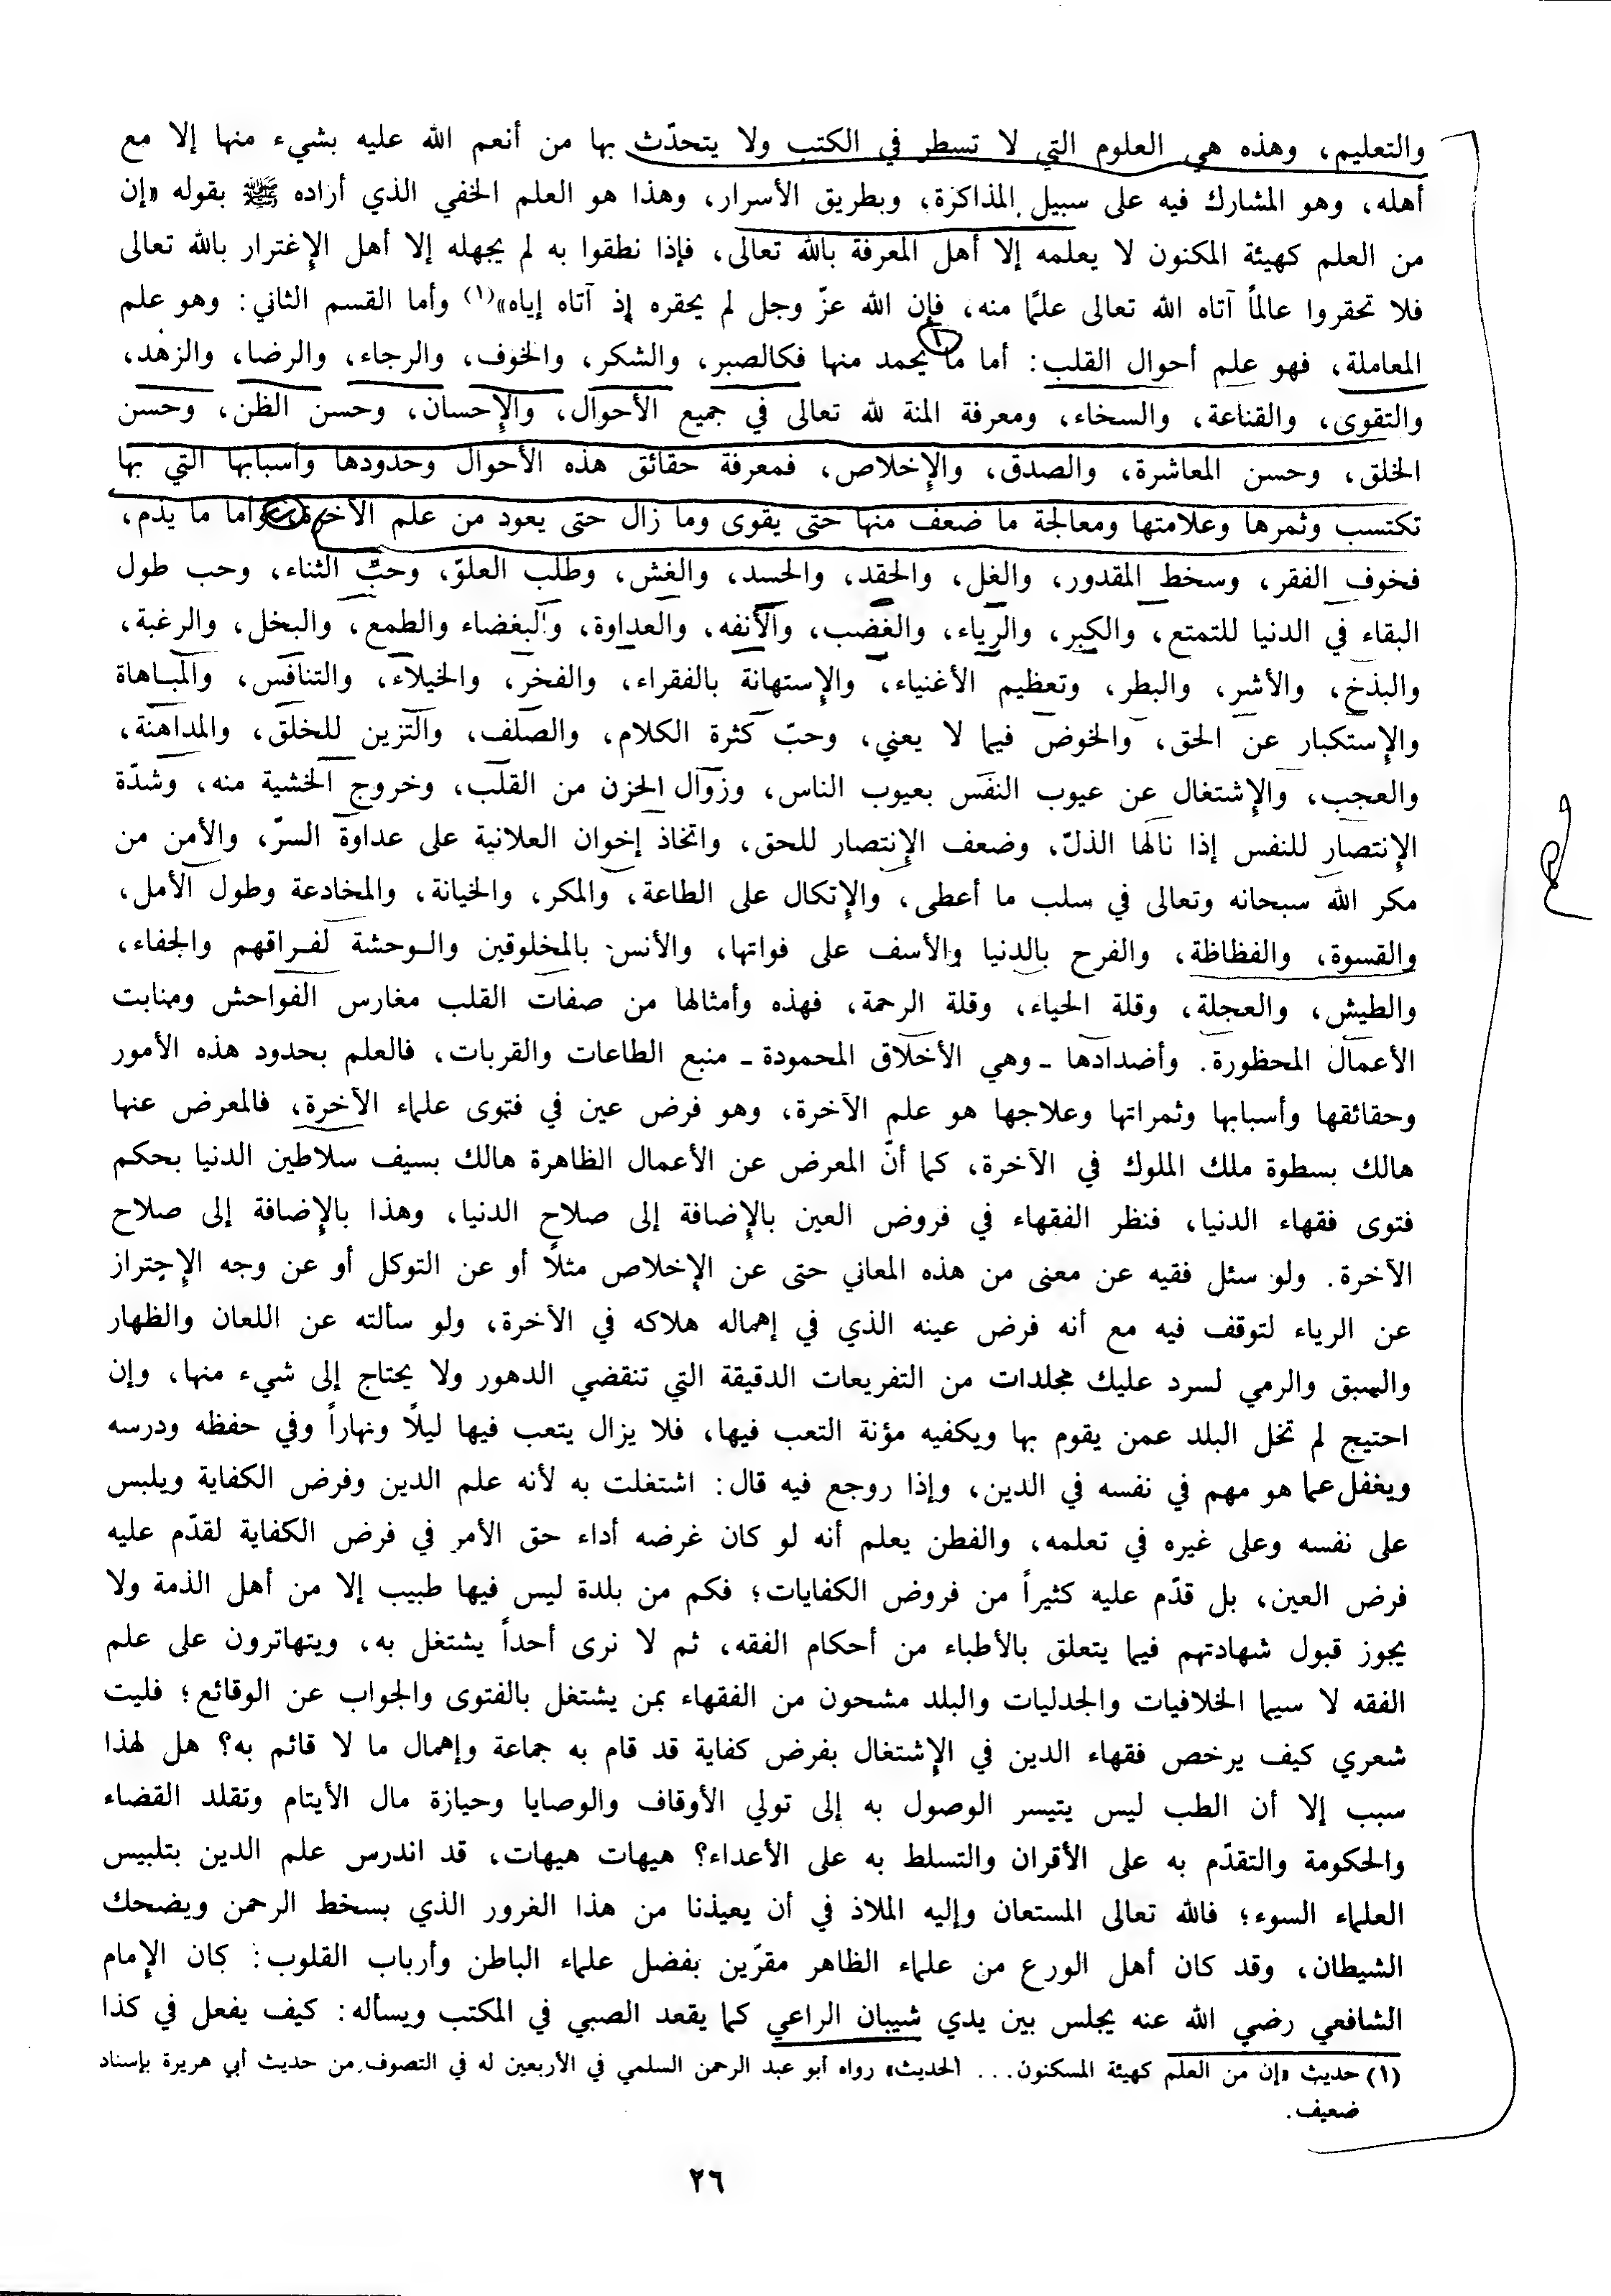 والتعليم، وهذه هي العلوم التي لا تسطر في الكتب ولا يتحدّث بها من أنعم الله عليه بشيء منها إلا مع
أهله، وهو المشارك فيه على سبيل المذاكرة، وبطريق الأسرار، وهذا هو العلم الخفي الذي أراده ﷺ بقوله «إن
من العلم كهيئة المكنون لا يعلمه إلا أهل المعرفة بالله تعالى، فإذا نطقوا به لم يجهله إلا أهل الإغترار بالله تعالى
فلا تحقروا عالماً آتاه الله تعالى علمًا منه، فإن الله عزّ وجل لم يحقره إذ آتاه إياه»(١) وأما القسم الثاني: وهو علم
المعاملة، فهو علم أحوال القلب: أما ما يحمد منها فكالصبر، والشكر، والخوف، والرجاء، والرضا، والزهد،
والتقوى، والقناعة، والسخاء، ومعرفة المنة لله تعالى في جميع الأحوال، والإحسان، وحسن الظن، وحسن
الخلق، وحسن المعاشرة، والصدق، والإخلاص، فمعرفة حقائق هذه الأحوال وحدودها وأسبابها التي بها
تكتسب وثمرها وعلامتها ومعالجة ما ضعف منها حتى يقوى وما زال حتى يعود من علم الآخرة، وأما ما يذم،
فخوف الفقر، وسخط المقدور، والغل، والحقد، والحسد، والغش، وطلب العلوّ، وحبّ الثناء، وحب طول
البقاء في الدنيا للتمتع، والكبر، والرياء، والغضب، والأنفه، والعداوة، والبغضاء والطمع، والبخل، والرغبة،
والبذخ، والأشر، والبطر، وتعظيم الأغنياء، والإستهانة بالفقراء، والفخر، والخيلاء، والتنافس، والمباهاة
والإستكبار عن الحق، والخوض فيما لا يعني، وحبّ كثرة الكلام، والصلف، والتزين للخلق، والمداهنة،
والعجب، والإشتغال عن عيوب النفس بعيوب الناس، وزوال الحزن من القلب، وخروج الخشية منه، وشدّة
الإنتصار للنفس إذا نالها الذلّ، وضعف الإنتصار للحق، واتخاذ إخوان العلانية على عداوة السرّ، والأمن من
مكر الله سبحانه وتعالى في سلب ما أعطى، والإتكال على الطاعة، والمكر، والخيانة، والمخادعة وطول الأمل،
والقسوة، والفظاظة، والفرح بالدنيا والأسف على فواتها، والأنس بالمخلوقين والوحشة لفراقهم والجفاء،
والطيش، والعجلة، وقلة الحياء، وقلة الرحمة، فهذه وأمثالها من صفات القلب مغارس الفواحش ومنابت
الأعمال المحظورة. وأضدادها ـ وهي الأخلاق المحمودة ـ منبع الطاعات والقربات، فالعلم بحدود هذه الأمور
وحقائقها وأسبابها وثمراتها وعلاجها هو علم الآخرة، وهو فرض عين في فتوى علماء الآخرة، فالمعرض عنها
هالك بسطوة ملك الملوك في الآخرة، كما أنّ المعرض عن الأعمال الظاهرة هالك بسيف سلاطين الدنيا بحكم
فتوى فقهاء الدنيا، فنظر الفقهاء في فروض العين بالإضافة إلى صلاح الدنيا، وهذا بالإضافة إلى صلاح
الآخرة. ولو سئل فقيه عن معنى من هذه المعاني حتى عن الإخلاص مثلًا أو عن التوكل أو عن وجه الإحتراز
عن الرياء لتوقف فيه مع أنه فرض عينه الذي في إهماله هلاكه في الآخرة، ولو سألته عن اللعان والظهار
والسبق والرمي لسرد عليك مجلدات من التفريعات الدقيقة التي تنقضي الدهور ولا يحتاج إلى شيء منها، وإن
احتيج لم تخل البلد عمن يقوم بها ويكفيه مؤنة التعب فيها، فلا يزال يتعب فيها ليلًا ونهاراً وفي حفظه ودرسه
ويغفل عما هو مهم في نفسه في الدين، وإذا روجع فيه قال: اشتغلت به لأنه علم الدين وفرض الكفاية ويلبس
على نفسه وعلى غيره في تعلمه، والفطن يعلم أنه لو كان غرضه أداء حق الأمر في فرض الكفاية لقدّم عليه
فرض العين، بل قدّم عليه كثيراً من فروض الكفايات؛ فكم من بلدة ليس فيها طبيب إلا من أهل الذمة ولا
يجوز قبول شهادتهم فيما يتعلق بالأطباء من أحكام الفقه، ثم لا نرى أحداً يشتغل به، ويتهاترون على علم
الفقه لا سيما الخلافيات والجدليات والبلد مشحون من الفقهاء بمن يشتغل بالفتوى والجواب عن الوقائع؛ فليت
شعري كيف يرخص فقهاء الدين في الإشتغال بفرض كفاية قد قام به جماعة وإهمال ما لا قائم به؟ هل لهذا
سبب إلا أن الطب ليس يتيسر الوصول به إلى تولي الأوقاف والوصايا وحيازة مال الأيتام وتقلد القضاء
والحكومة والتقدّم به على الأقران والتسلط به على الأعداء؟ هيهات هيهات، قد اندرس علم الدين بتلبيس
العلماء السوء؛ فالله تعالى المستعان وإليه الملاذ في أن يعيذنا من هذا الغرور الذي بسخط الرحمن ويضحك
الشيطان، وقد كان أهل الورع من علماء الظاهر مقرّين بفضل علماء الباطن وأرباب القلوب: كان الإمام
الشافعي رضي الله عنه يجلس بين يدي شيبان الراعي كما يقعد الصبي في المكتب ويسأله: كيف يفعل في كذا
(١) حديث «إن من العلم كهيئة المسكنون... الحديث» رواه أبو عبد الرحمن السلمي في الأربعين له في التصوف من حديث أبي هريرة بإسناد
ضعيف.
٢٦